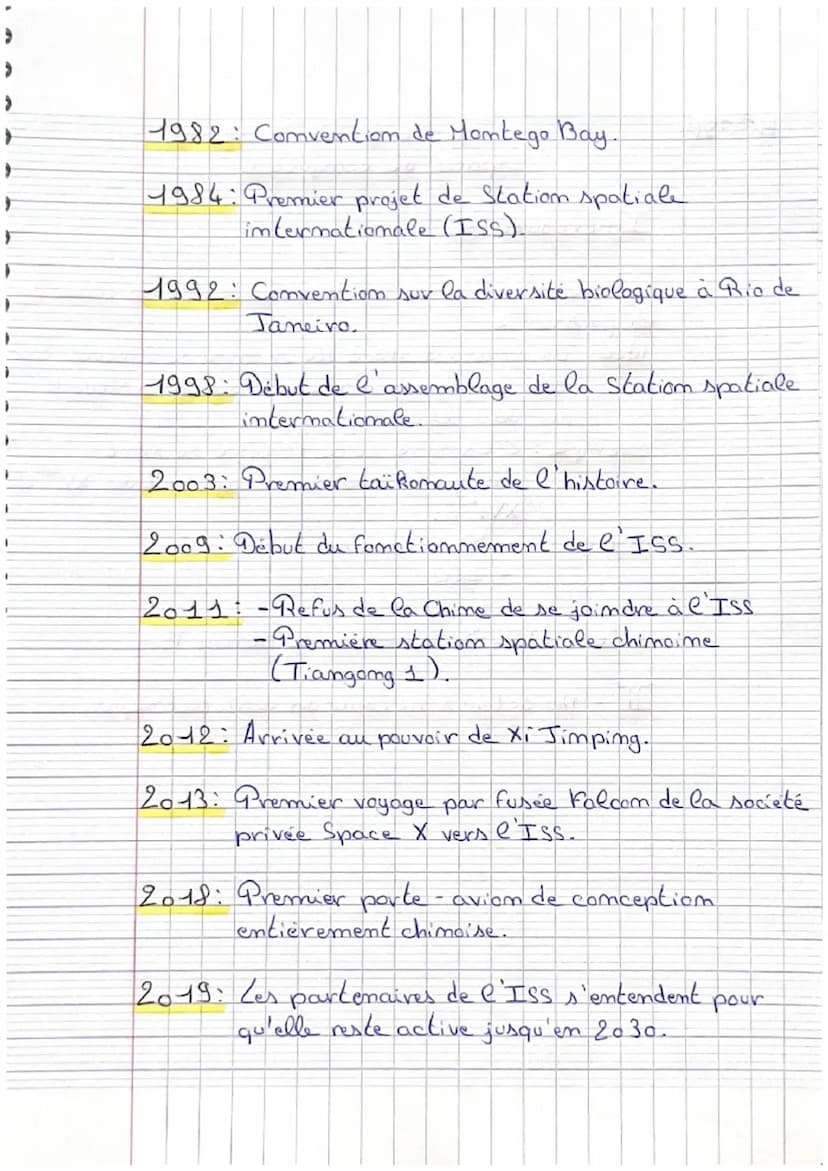 1982: Convention de Montego Bay.
1984: Premier projet de Station spatiale
internationale (ISS).
1992: Convention sur la diversité biologique à Rio de
Janeiro.
1998: Début de l'assemblage de la Station spatiale
internationale.
2003: Premier taïkonaute de l'histoire.
2009: Début du fonctionnement de l'ISS.
2011: -Refus de la Chine de se joindre à l'ISS
-Première station spatiale chinoine
(Tiangong 1).
2012: Arrivée au pouvoir de Xi Jinping.
2013: Premier voyage par fusée Falcon de la société
privée Space X vers l'ISS.
2018: Premier porte-avion de conception
entièrement chinoise.
2019: Les partenaires de l'ISS s'entendent pour
qu'elle reste active jusqu'en 2030.